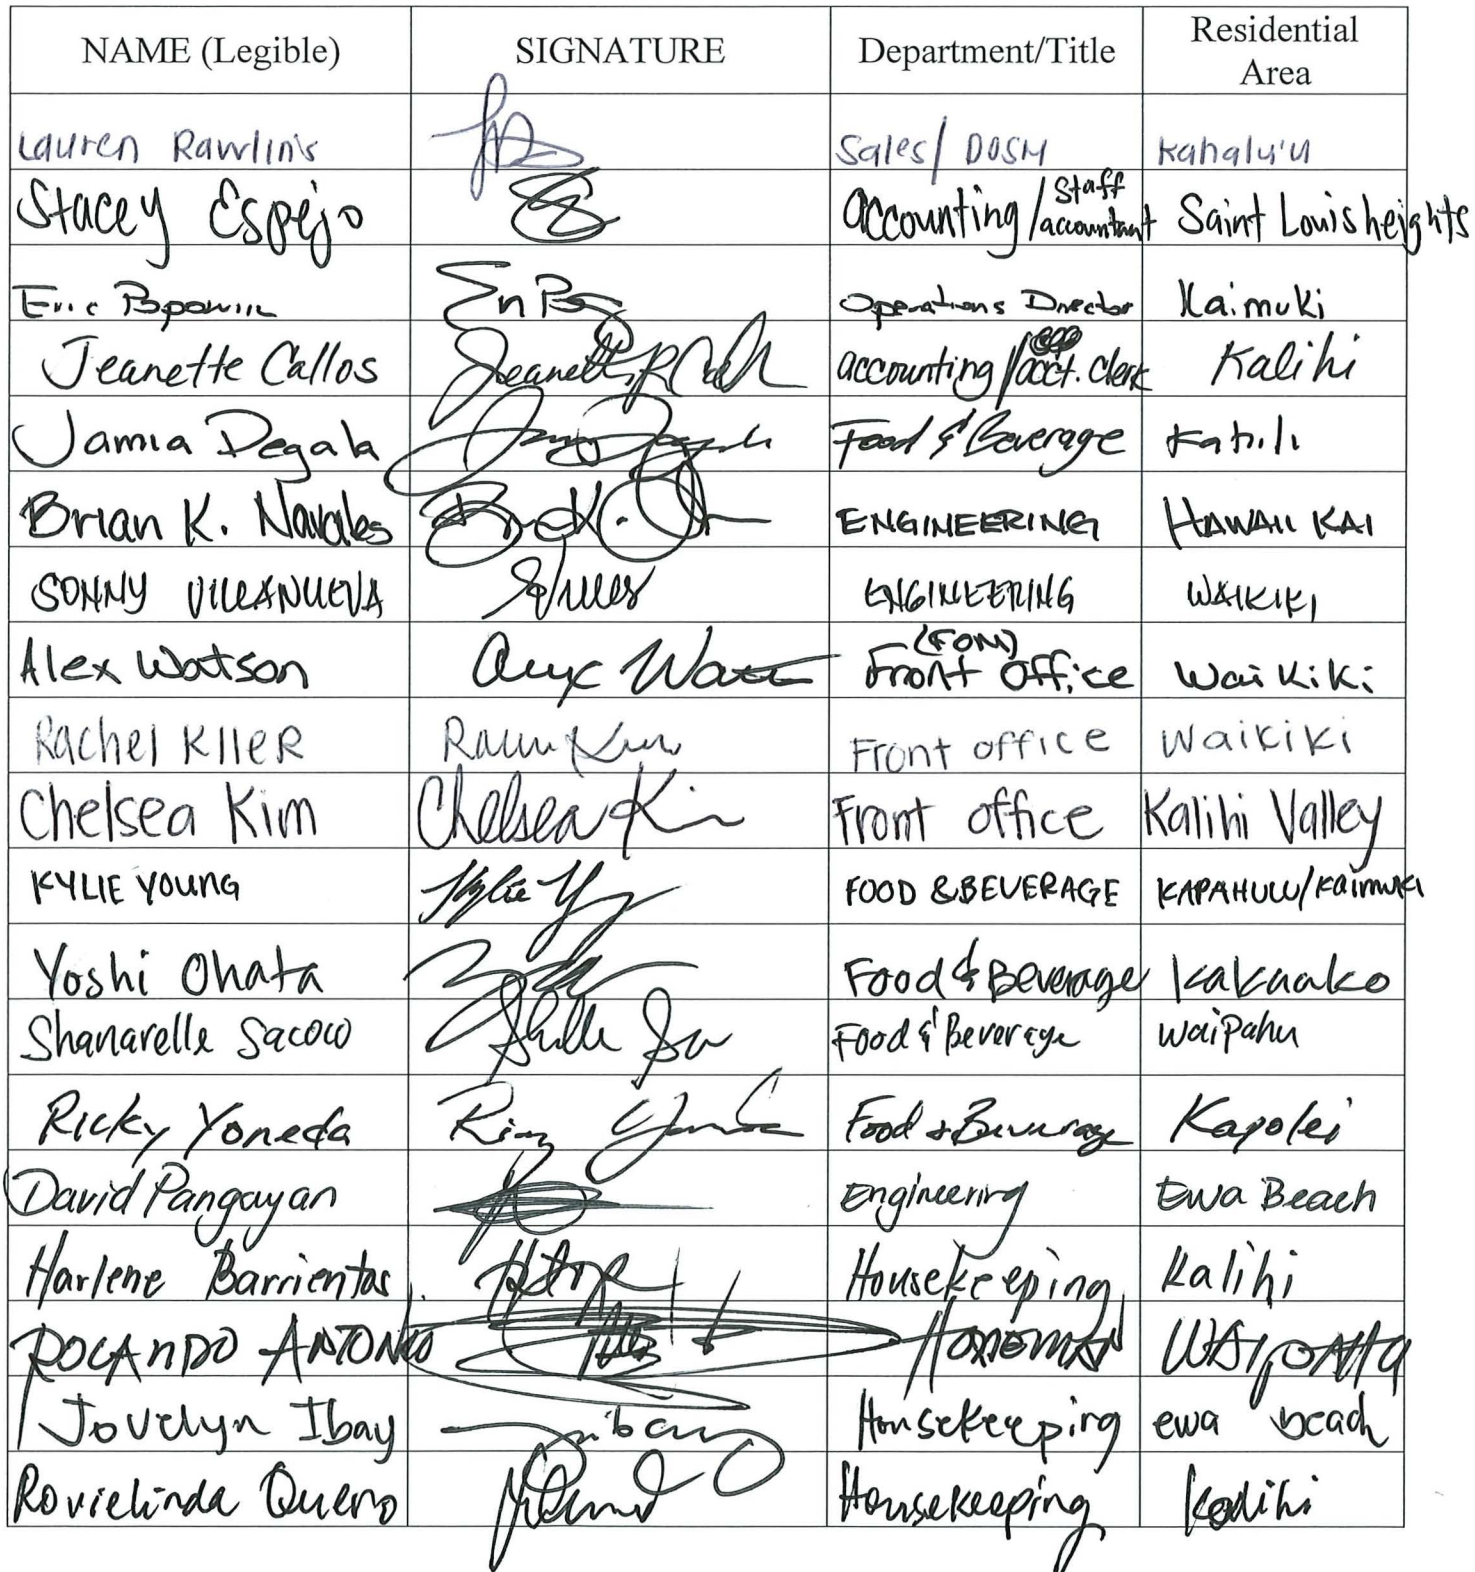 NAME (Legible) SIGNATURE Department/Title Residential Area
Lauren Rawlins Sales/DOSM Kahalu'u
Stacey Espejo accounting/staff accountant Saint Louis heights
Eric Operations Director Kaimuki
Jeanette Callos Jeanette accounting/acct. clerk Kalihi
Jamia Degala Food & Beverage
Brian K. Navales ENGINEERING HAWAII KAI
SONNY VILLANUEVA ENGINEERING WAIKIKI
Alex Watson (FOM) Front Office Waikiki
Rachel Front office Waikiki
Chelsea Kim Chelsea Kim Front office Kalihi Valley
KYLIE YOUNG Kylie FOOD & BEVERAGE KAPAHULU/Kaimuki
Yoshi Ohata Food & Beverage Kakaako
Shanarelle Food & Beverage Waipahu
Ricky Yoneda Food & Beverage Kapolei
David Pangayan Engineering Ewa Beach
Harlene Barrientos Housekeeping Kalihi
ANTONIO
Jovelyn Ibay Housekeeping ewa beach
Rovielinda Quero Housekeeping Kalihi